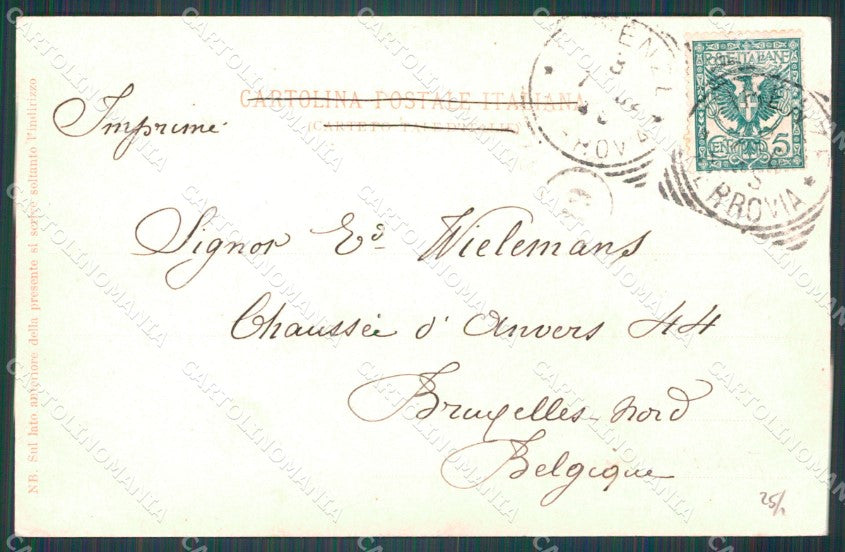 CARTOLINA POSTALE ITALIANA
Imprimé
Signor Ed. Wielemans
Chaussée d'Anvers 44
Bruxelles-Nord
Belgique
NB. Sul lato anteriore della presente si scrive soltanto l'indirizzo
POSTE ITALIANE
CENT 5
FERROVIA
25/
CARTOLINOMANIA